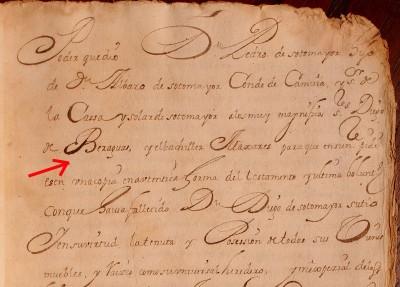 Poder que dio Dn Pedro de sotomayor hijo
de Dn Albaro de sotomayor Conde de Camiña, y sr de
la Cassa y solar de sotomayor a los muy magnificos srs Diego
de Beraguas, y el bachiller Alaxares para que en su n pidie
esen una copia en autentica forma del testamento y ultima bolunt
Conque havia fallecido Dn Diego de sotomayor su tio
I en su virtud la tenuta y Posesion de todos sus
muebles, y raices como su universal heredero,